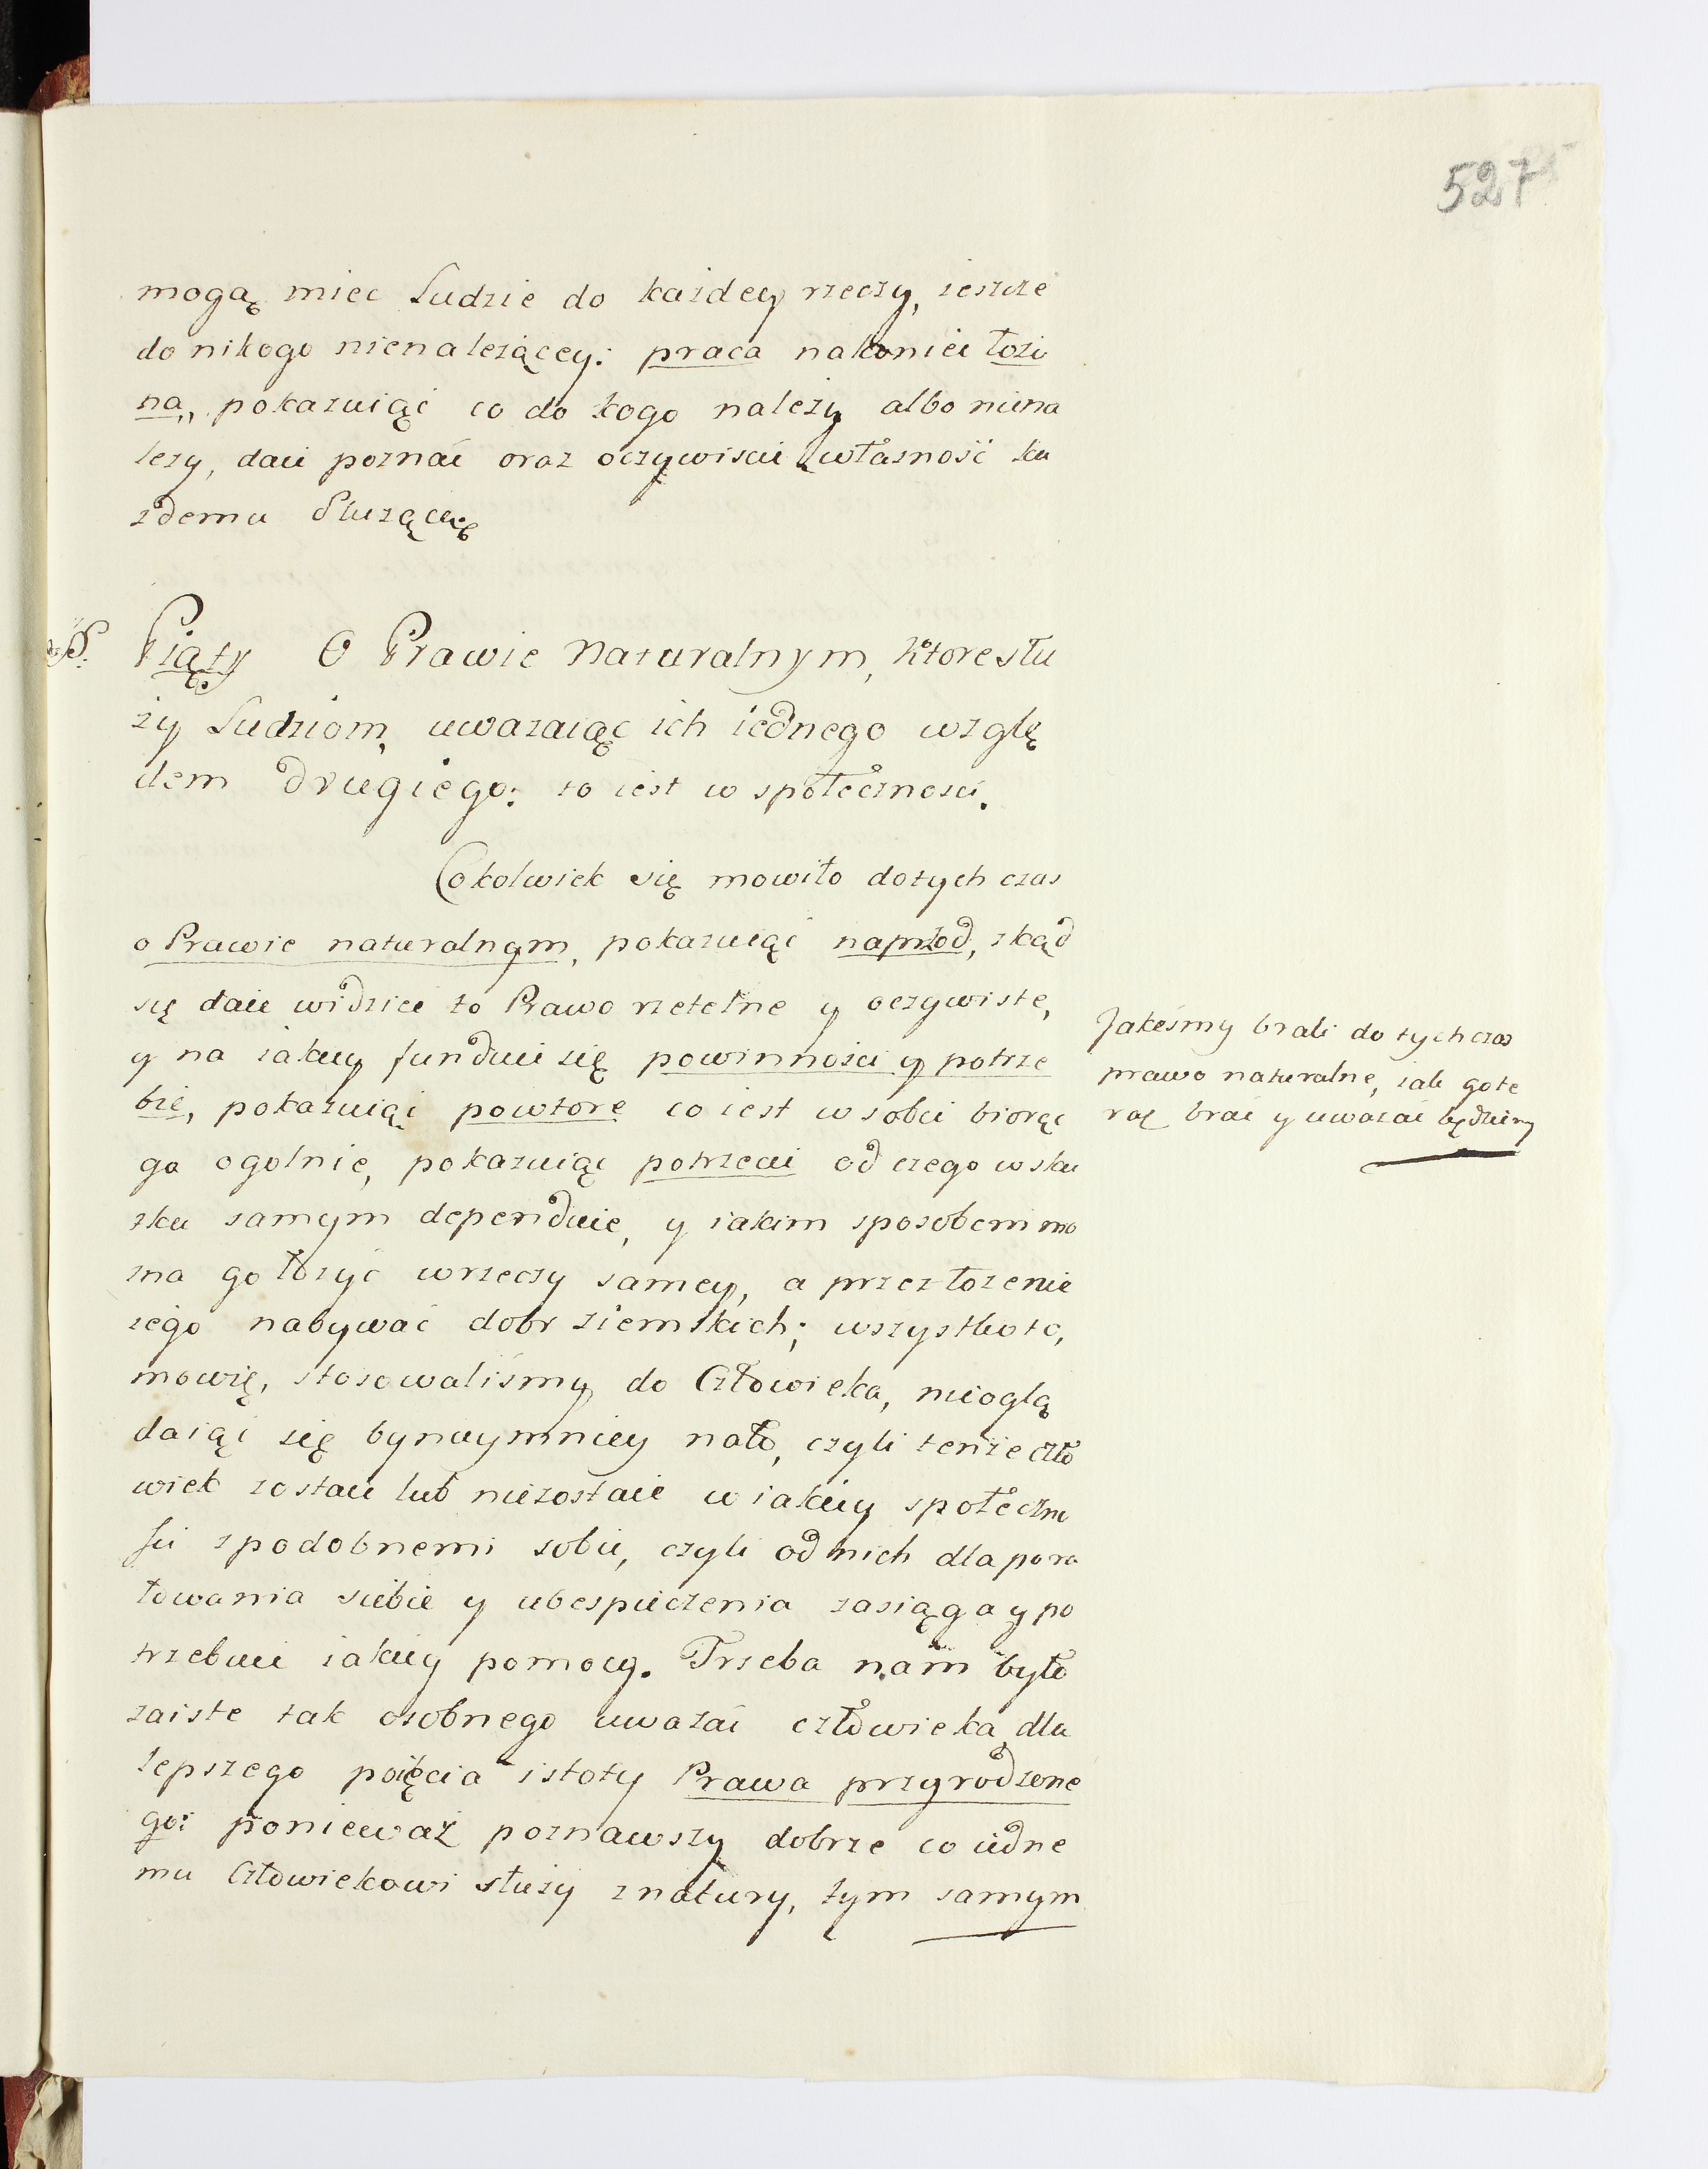 527
mogą miec Ludzie do każdey rzeczy, ieszcze
do nikogo nienależącey: praca nakoniec łożo
na,, pokazuiąc co do kogo należy albo niena
lezy, daie poznać oraz oczywiscie własność ka
zdemu Służącą
§. Piąty O Prawie Naturalnym, ktore słu
ży Ludziom, uwazaiąc ich iednego wzglę
dem drugiego: to iest w społecznosci.
Cokolwiek się mowiło dotychczas
o Prawie naturalnym, pokazuiąc naprzod, zkąd
się daie widzieć to Prawo rzetelne y oczywiste,
y na iakiey funduie się powinności y potrze
bie, pokazuiąc powtore co iest w sobie biorąc
go ogolnie, pokazuiąc potrzecie od czego w sku
tku samym dependuie, y iakim sposobem mo
zna go łożyć w rzeczy samey, a przez łozenie
iego nabywać dobr ziemskich; wszystko to,
mowię, stosowaliśmy do Człowieka, nieoglą
daiąc się bynaymniey nato, czyli tenże czło
wiek zostaie lub niezostaie w iakiey społeczno
ści z podobnemi sobie, czyli od nich dla pora
towania siebie y ubespieczenia zasiąga y po
trzebuie iakiey pomocy. Trzeba nam było
zaiste tak osobnego uważać człowieka dla
lepszego poięcia istoty Prawa przyrodzone
go: ponieważ poznawszy dobrze co iedne
mu Człowiekowi służy z natury, tym samym
Jakeśmy brali do tychczas
prawo naturalne, iak go te
raz brać y uważać będziemy